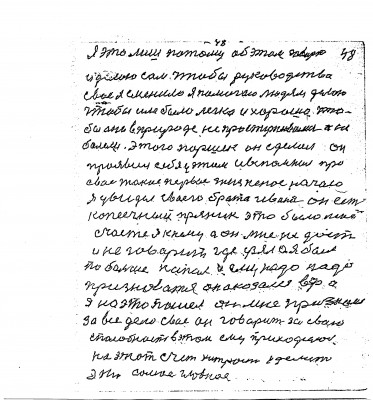 48
я это лиш потому об этом говорю 48
и делаю сам чтобы руководства
свое я сменило я помогаю людям делаю
чтобы им было легко и хорошо что-
бы они в природе не простуживали и не
болели. Этого порщик он сделал он
проявил себя у этом и вспомнил про
свое такие первое жизненое начало
я увидел своего брата ивана он ест
копеечный пряник это было мое
счастье я к нему а он мне не дает
и не говорит где взял а я был
побольше напал и ему надо надо
призноватя он оказался вор а
я на это пошел он мне признал
за все дело свое он говорит за свою
способность в этом ему приходило
на этот счет хитрость зделить
эти самое главное